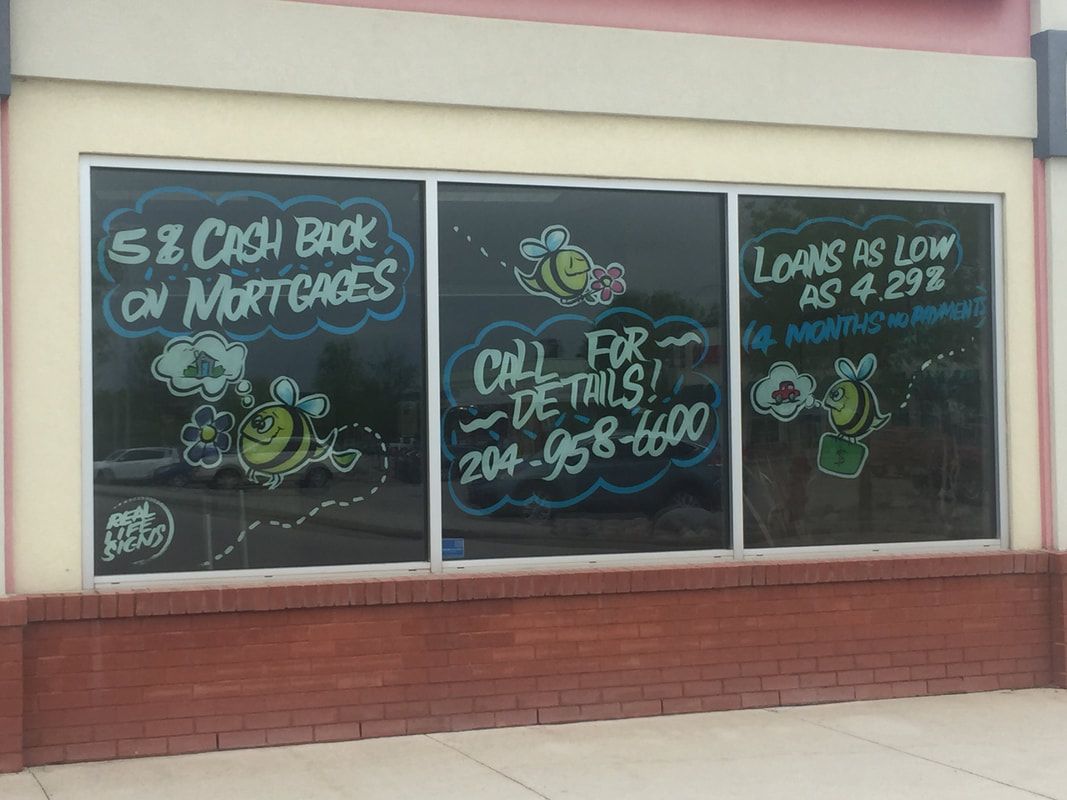 5% CASH BACK
ON MORTGAGES
REAL
LIFE
SIGNS
CALL FOR
DETAILS!
204-958-6600
LOANS AS LOW
AS 4.29%
(4 MONTHS NO PAYMENTS)
$